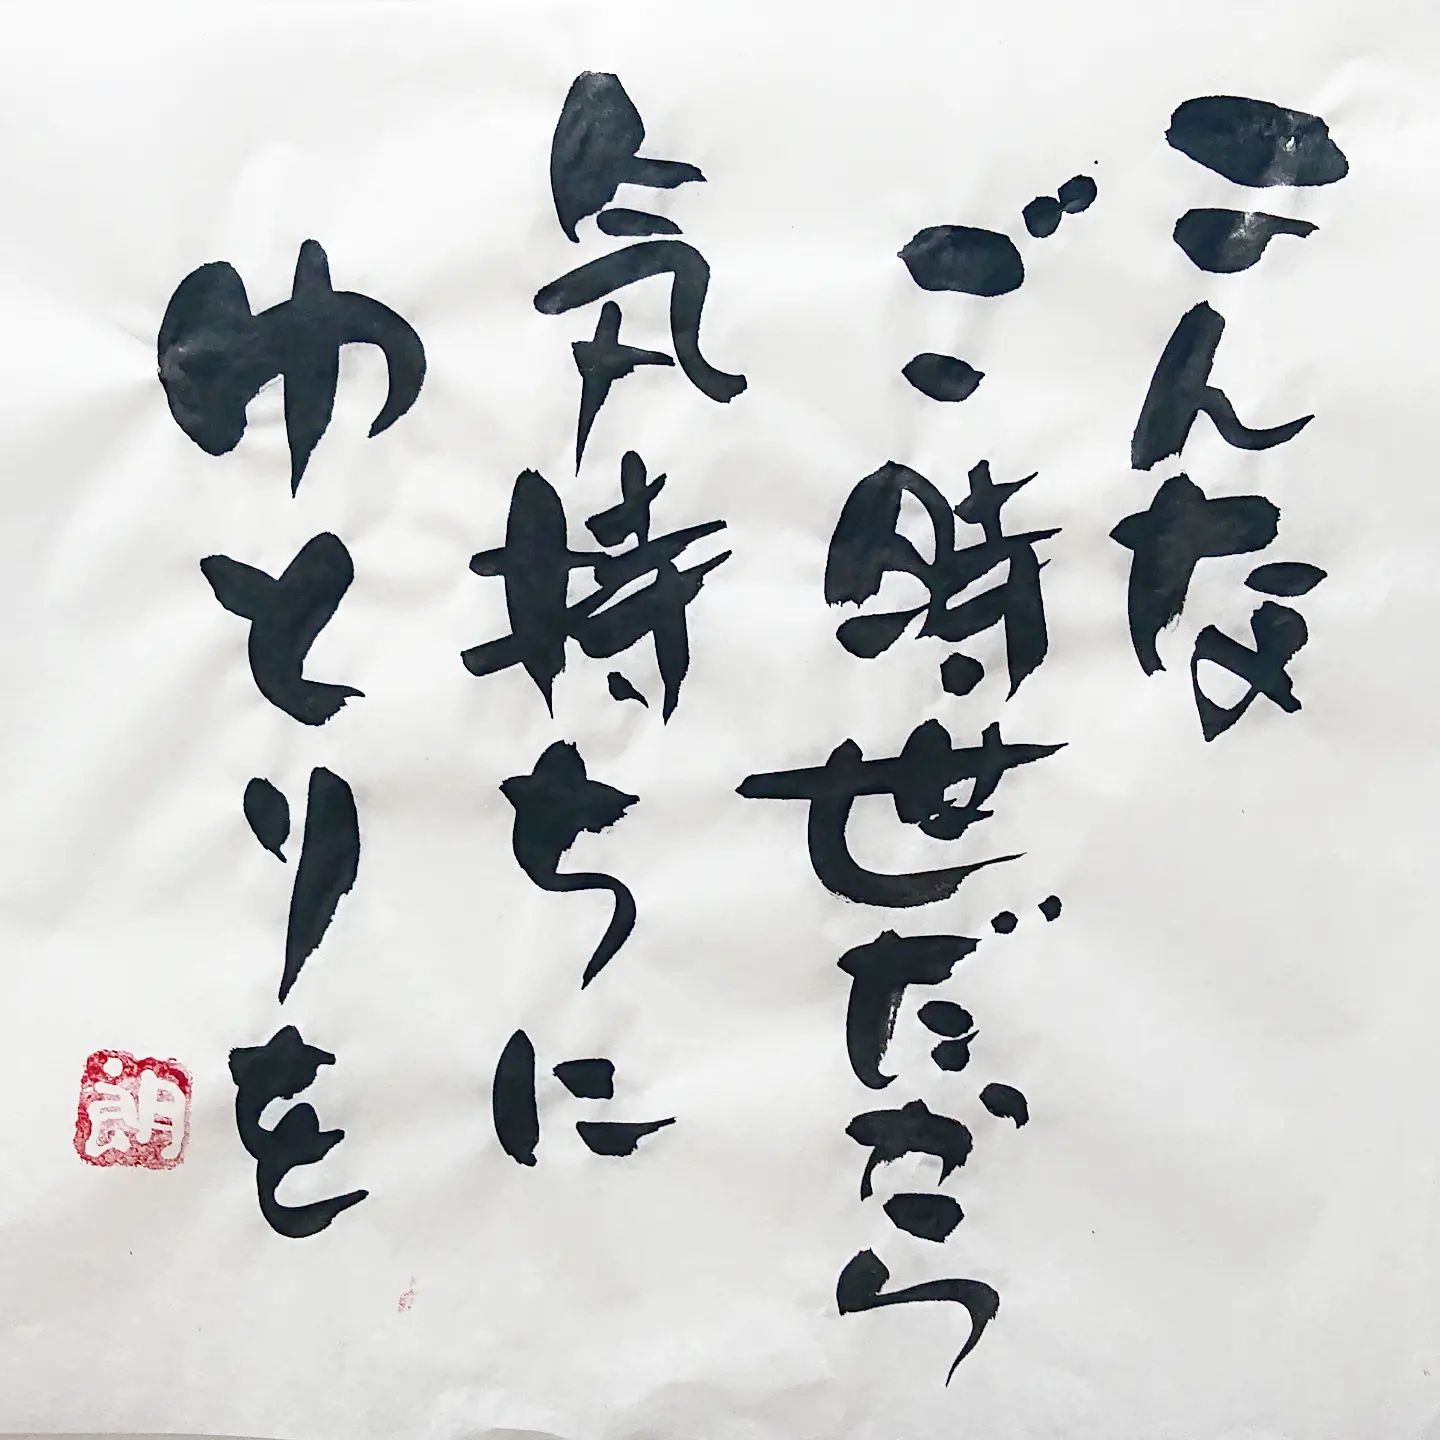 こんな
ご時世だから
気持ちに
ゆとりを
朗